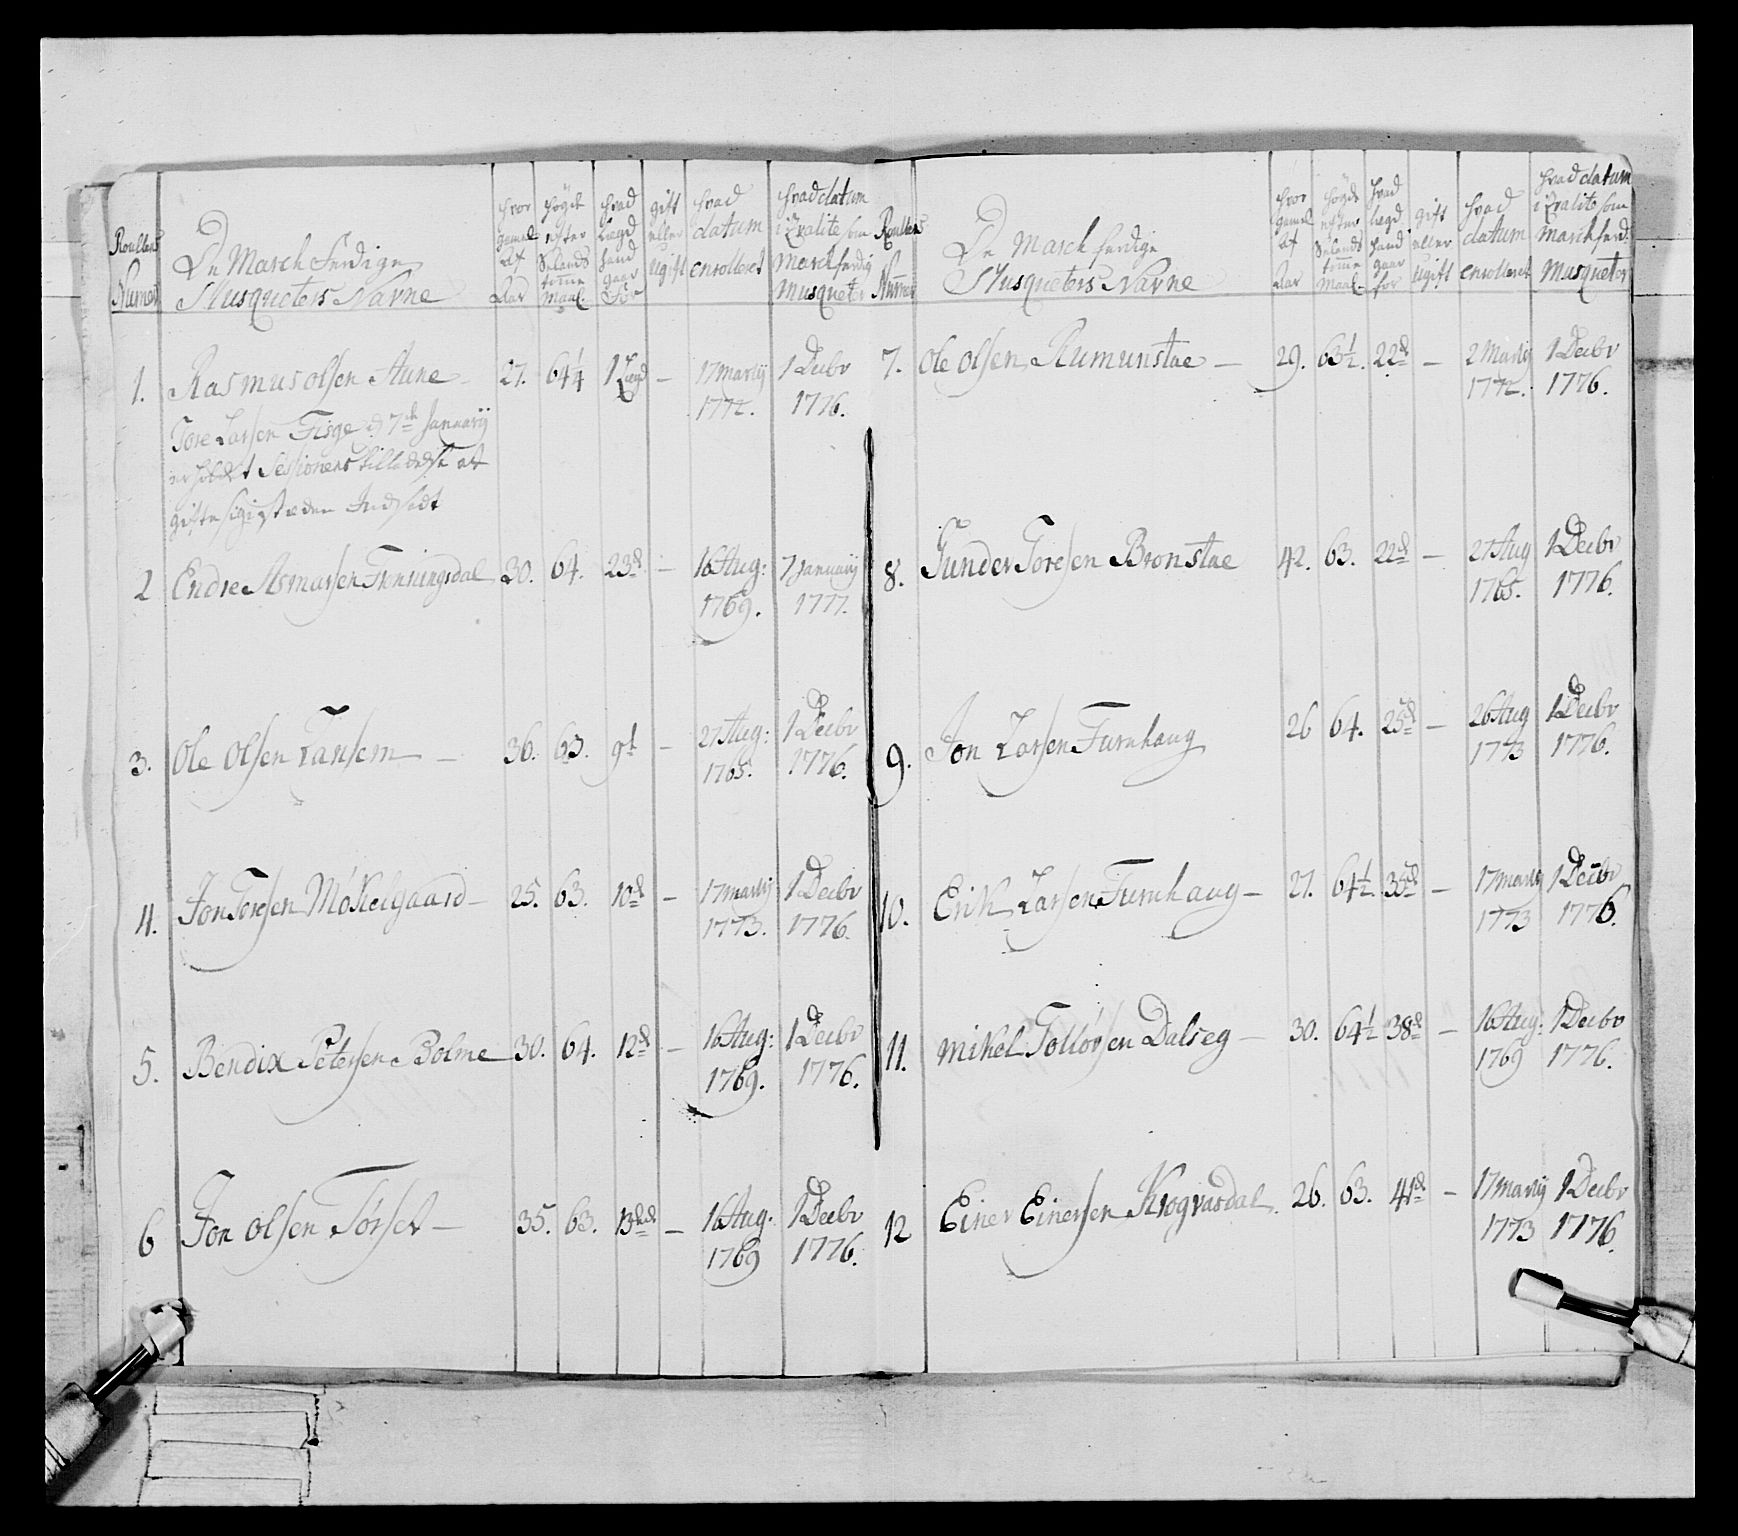 Roullens Numer | De March Ferdige Musqueters Navne | hvor gamel af Aar | høyde efter Selands tomme Maal | hvad Lægd hand gaar For | gift eller Ugift | hvad datum enrolleret | hvad datum i Qvalite som March ferdig Musqueter
1. Rasmus olsen Aune – 27. 64¼ 1 Lægd – 17 Martij 1772. 1 Decbr 1776.
Tore Larsen Fisge d 7de Januarij
erholdt Sessionens tilladelse at
gifte sig
2 Endre Asmursen 30. 64. 23d – 16 Aug: 1769. 7 Januarij 1777.
3. Ole Olsen Tansem – 36. 63. 9d – 27 Aug: 1765. 1 Decbr 1776.
4. Jon Toresen Møkelgaard – 25. 63. 10d – 17 Martij 1773. 1 Decbr 1776.
5. Bendix Petersen Bolme 30. 64. 12d – 16 Aug: 1769. 1 Decbr 1776.
6 Jon olsen Tørset – 35. 63. 13de – 16 Aug: 1769 1 Decbr 1776.
Roullens Numer | De March ferdige Musqueters Navne | hvor gamel af Aar | høyde efter Selands tomme Maal | hvad lægd hand gaar for | gift eller ugift | hvad datum enrolleret | hvad datum i Qvalite som March ferd. Musqueter
7. Ole olsen Rumunstae – 29. 63½. 22d – 2 Martij 1772. 1 Decbr 1776.
8. Gunder Toresen Bronstae 42. 63. 22d – 27 Aug 1765. 1 Decbr 1776.
9. Jon Larsen Furuhaug 26 64. 25d – 26 Aug 1773 1 Decbr 1776.
10. Erik Larsen Furuhaug – 27. 64½. 35d – 17 Martij 1773 1 Decbr 1776.
11. Mikel Tollørsen Dalseg – 30. 64½ 38d – 16 Aug: 1769 1 Decbr 1776.
12 Einer Einersen Krogvasdal. 26. 63. 41d – 17 Martij 1773 1 Decbr 1776.